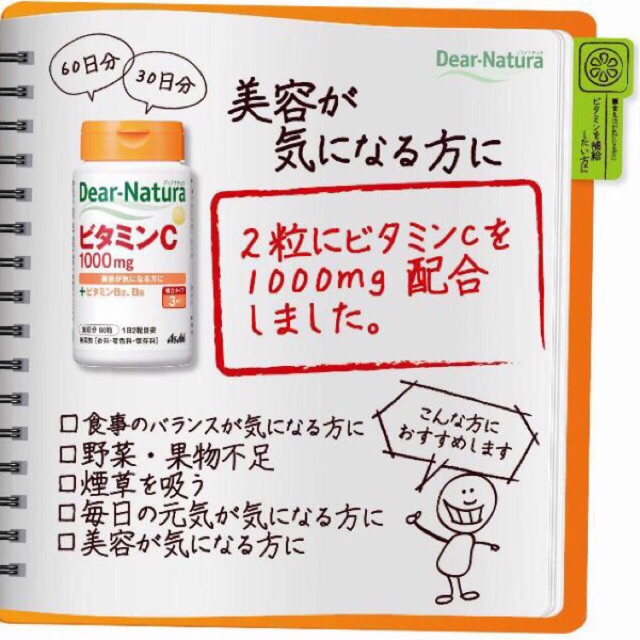 60日分
30日分
Dear-Natura
美容が
気になる方に
ビタミンを補給
したい方に
Dear-Natura
ビタミンC
1000mg
美容が気になる方に
+ビタミンB2、B6
30日分 60粒
1日2粒目安
無添加[香料・着色料・保存料]
Asahi
2粒にビタミンCを
1000mg 配合
しました。
こんな方に
おすすめします
□食事のバランスが気になる方に
□野菜・果物不足
□煙草を吸う
□毎日の元気が気になる方に
□美容が気になる方に